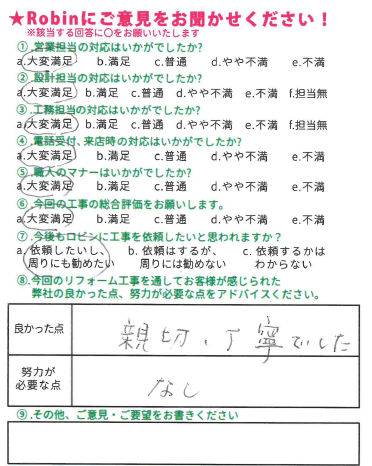 ★Robinにご意見をお聞かせください！
※該当する回答に〇をお願いいたします
①.営業担当の対応はいかがでしたか?
a.大変満足 b.満足 c.普通 d.やや不満 e.不満
②.設計担当の対応はいかがでしたか?
a.大変満足 b.満足 c.普通 d.やや不満 e.不満 f.担当無
③.工務担当の対応はいかがでしたか?
a.大変満足 b.満足 c.普通 d.やや不満 e.不満 f.担当無
④.電話受付、来店時の対応はいかがでしたか?
a.大変満足 b.満足 c.普通 d.やや不満 e.不満
⑤.職人のマナーはいかがでしたか?
a.大変満足 b.満足 c.普通 d.やや不満 e.不満
⑥.今回の工事の総合評価をお願いします。
a.大変満足 b.満足 c.普通 d.やや不満 e.不満
⑦.今後もロビンに工事を依頼したいと思われますか？
a.依頼したいし、 b.依頼はするが、 c.依頼するかは
周りにも勧めたい 周りには勧めない わからない
⑧.今回のリフォーム工事を通してお客様が感じられた
弊社の良かった点、努力が必要な点をアドバイスください。
良かった点 親切、丁寧でした
努力が
必要な点 なし
⑨.その他、ご意見・ご要望をお書きください